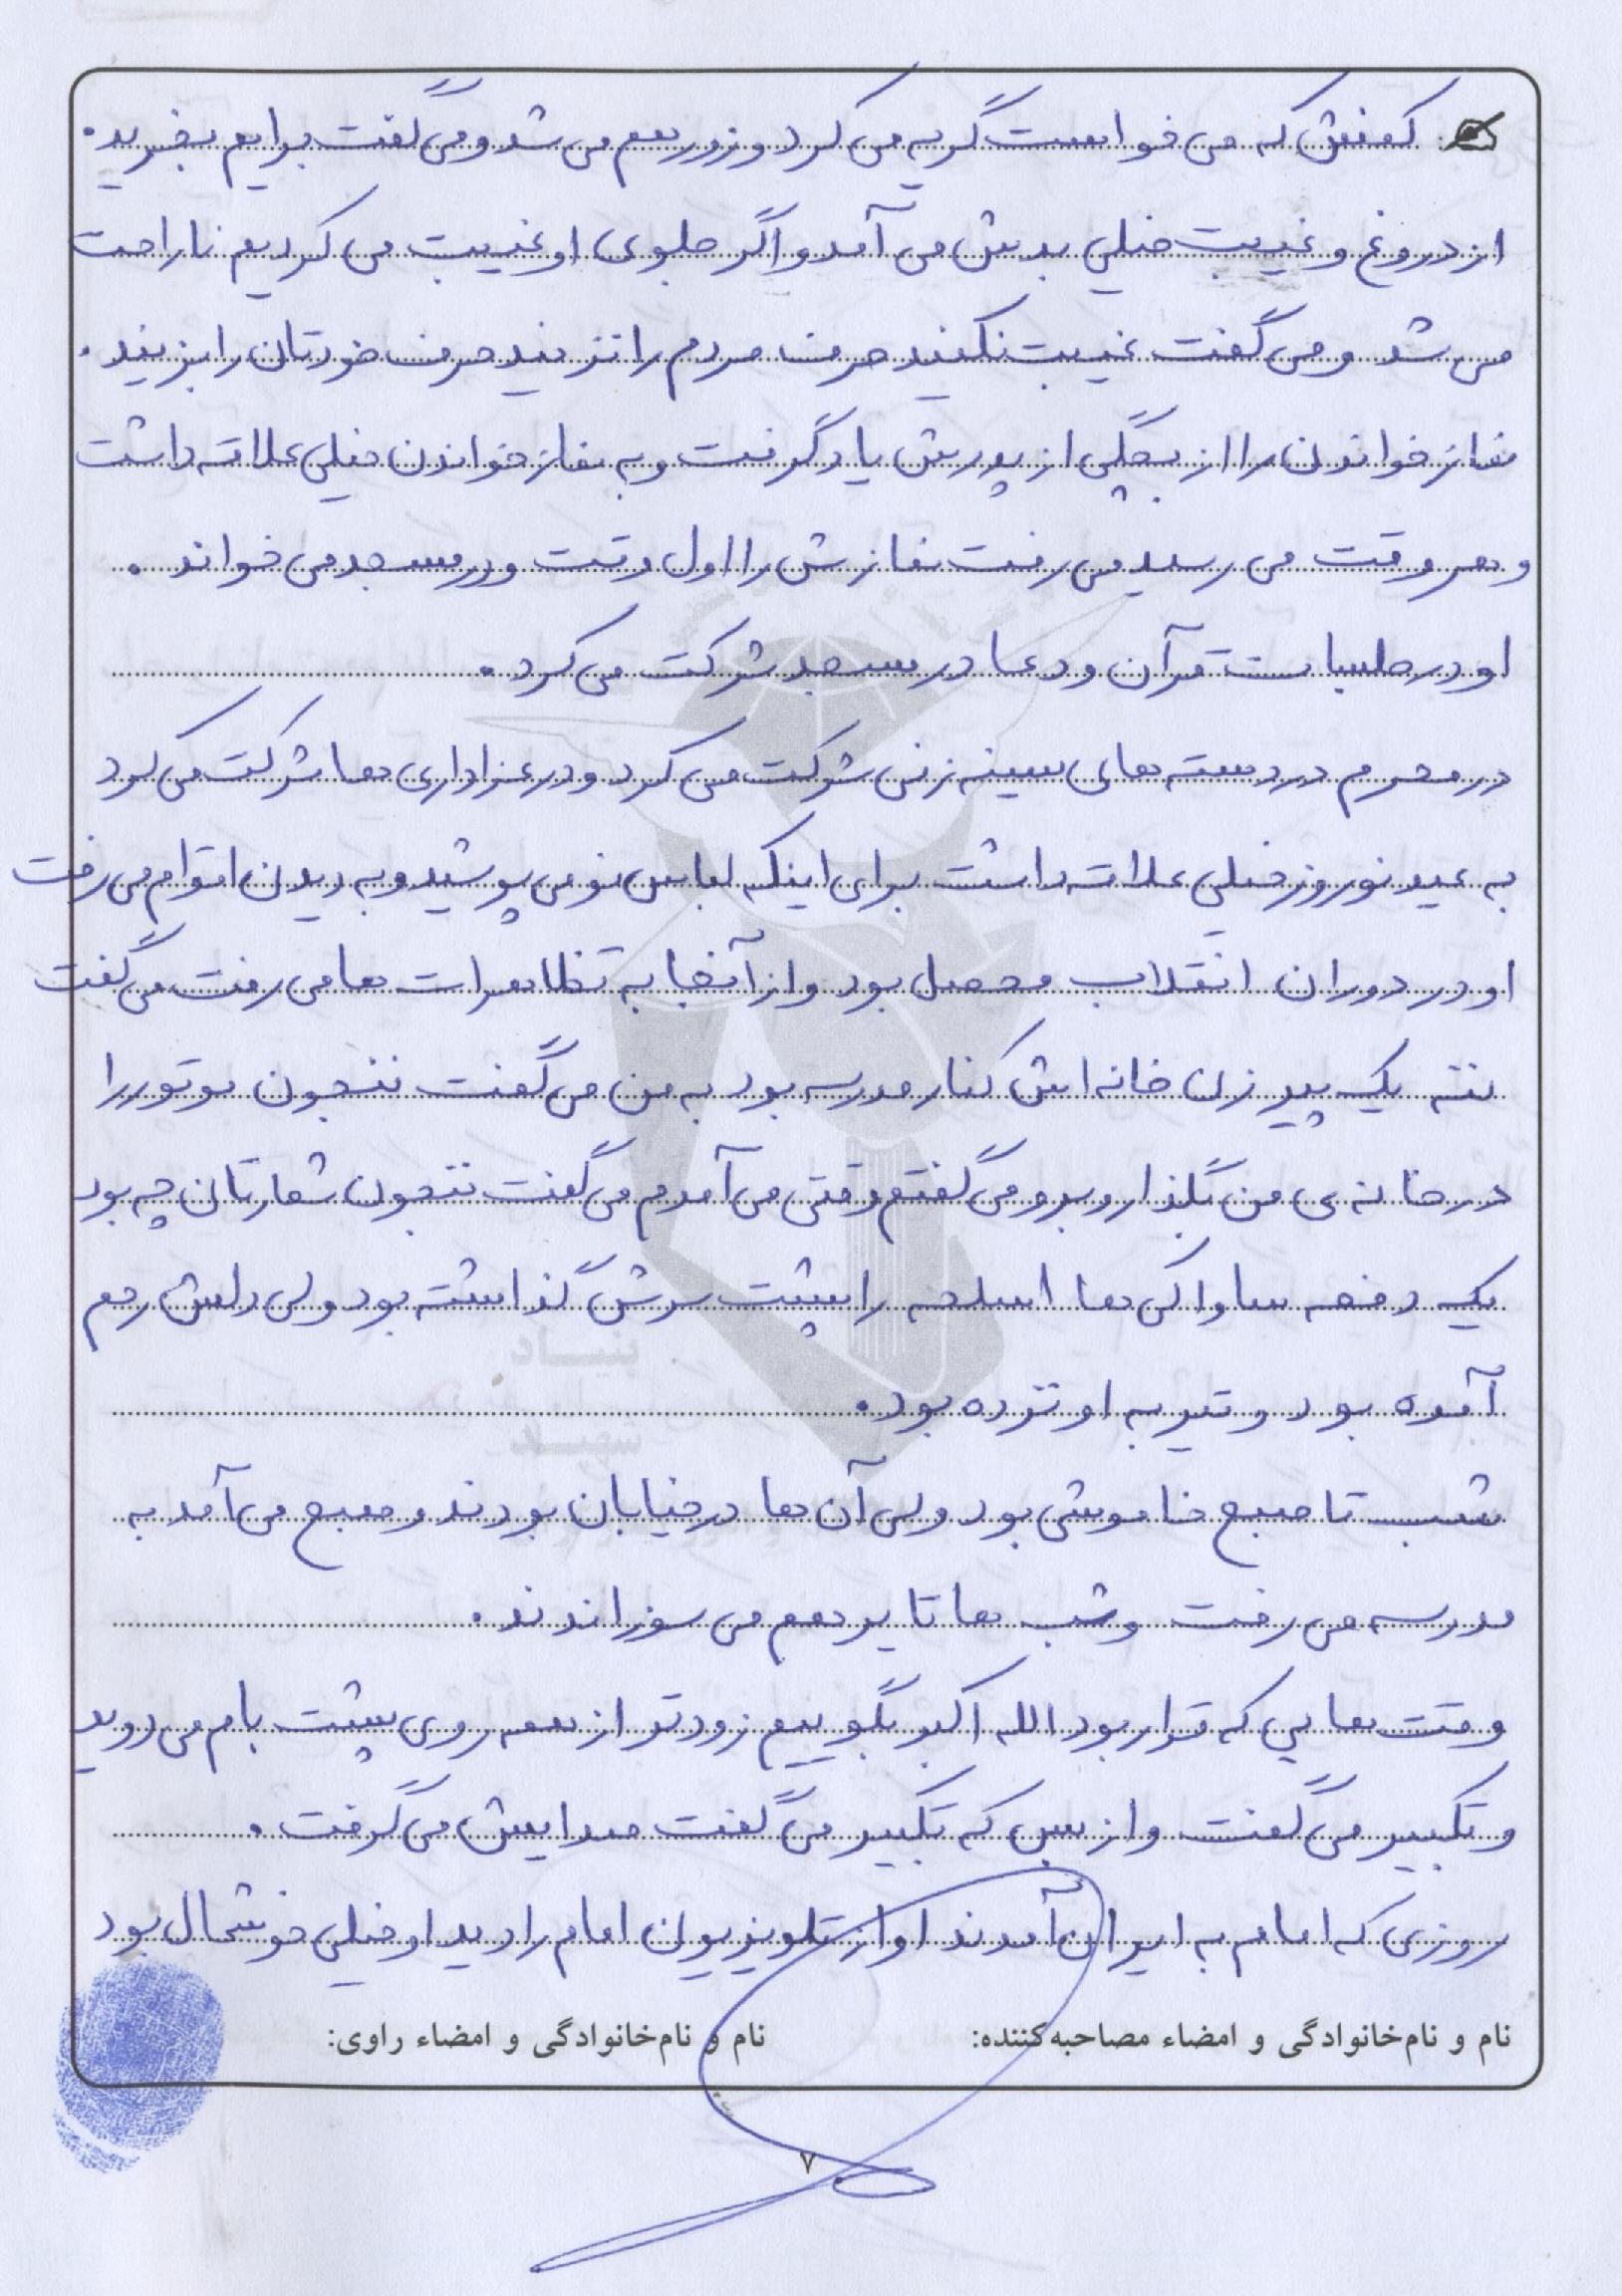 کفش که می خواست گریه می کرد و زورهم می شد و می گفت برایم بخرید.
از دروغ و غیبت خیلی بدش می آمد و اگر جلوی او غیبت می کردیم ناراحت
می شد و می گفت غیبت نکنید حرف مردم را نزنید حرف خودتان را بزنید.
نماز خواندن را از بچگی از پدرش یاد گرفت و به نماز خواندن خیلی علاقه داشت
و هر وقت می رسید می رفت نمازش را اول وقت و در مسجد می خواند.
او در جلسات قرآن و دعا در مسجد شرکت می کرد.
در محرم در دسته های سینه زنی شرکت می کرد و در عزاداری ها شرکت می کرد
به عید نوروز خیلی علاقه داشت برای اینکه لباس نو می پوشید و به دیدن اقوام می رفت
او در دوران انقلاب محصل بود و از آنجا به تظاهرات ها می رفت می گفت
ننه یک پیر زن خانه اش کنار مدرسه بود به من می گفت ننجون موتور را
در خانه ی من بگذار و برو می گفتم وقتی می آمدم می گفت ننجون شعارتان چه بود
یک دفعه ساواکی ها اسلحه را پشت سرش گذاشته بود ولی دلش رحم
آمده بود و تیر به او نزده بود.
شب تا صبح خاموشی بود ولی آن ها در خیابان بودند و صبح می آمد به
مدرسه می رفت و شب ها تایر هم می سوزاندند.
وقت هایی که قرار بود الله اکبر بگوییم زودتر از همه روی پشت بام می دوید
و تکبیر می گفت و از بس که تکبیر می گفت صدایش می گرفت.
روزی که امام به ایران آمدند او از تلویزیون امام را دید او خیلی خوشحال بود
نام و نام‌خانوادگی و امضاء مصاحبه‌کننده: نام و نام‌خانوادگی و امضاء راوی:
۷